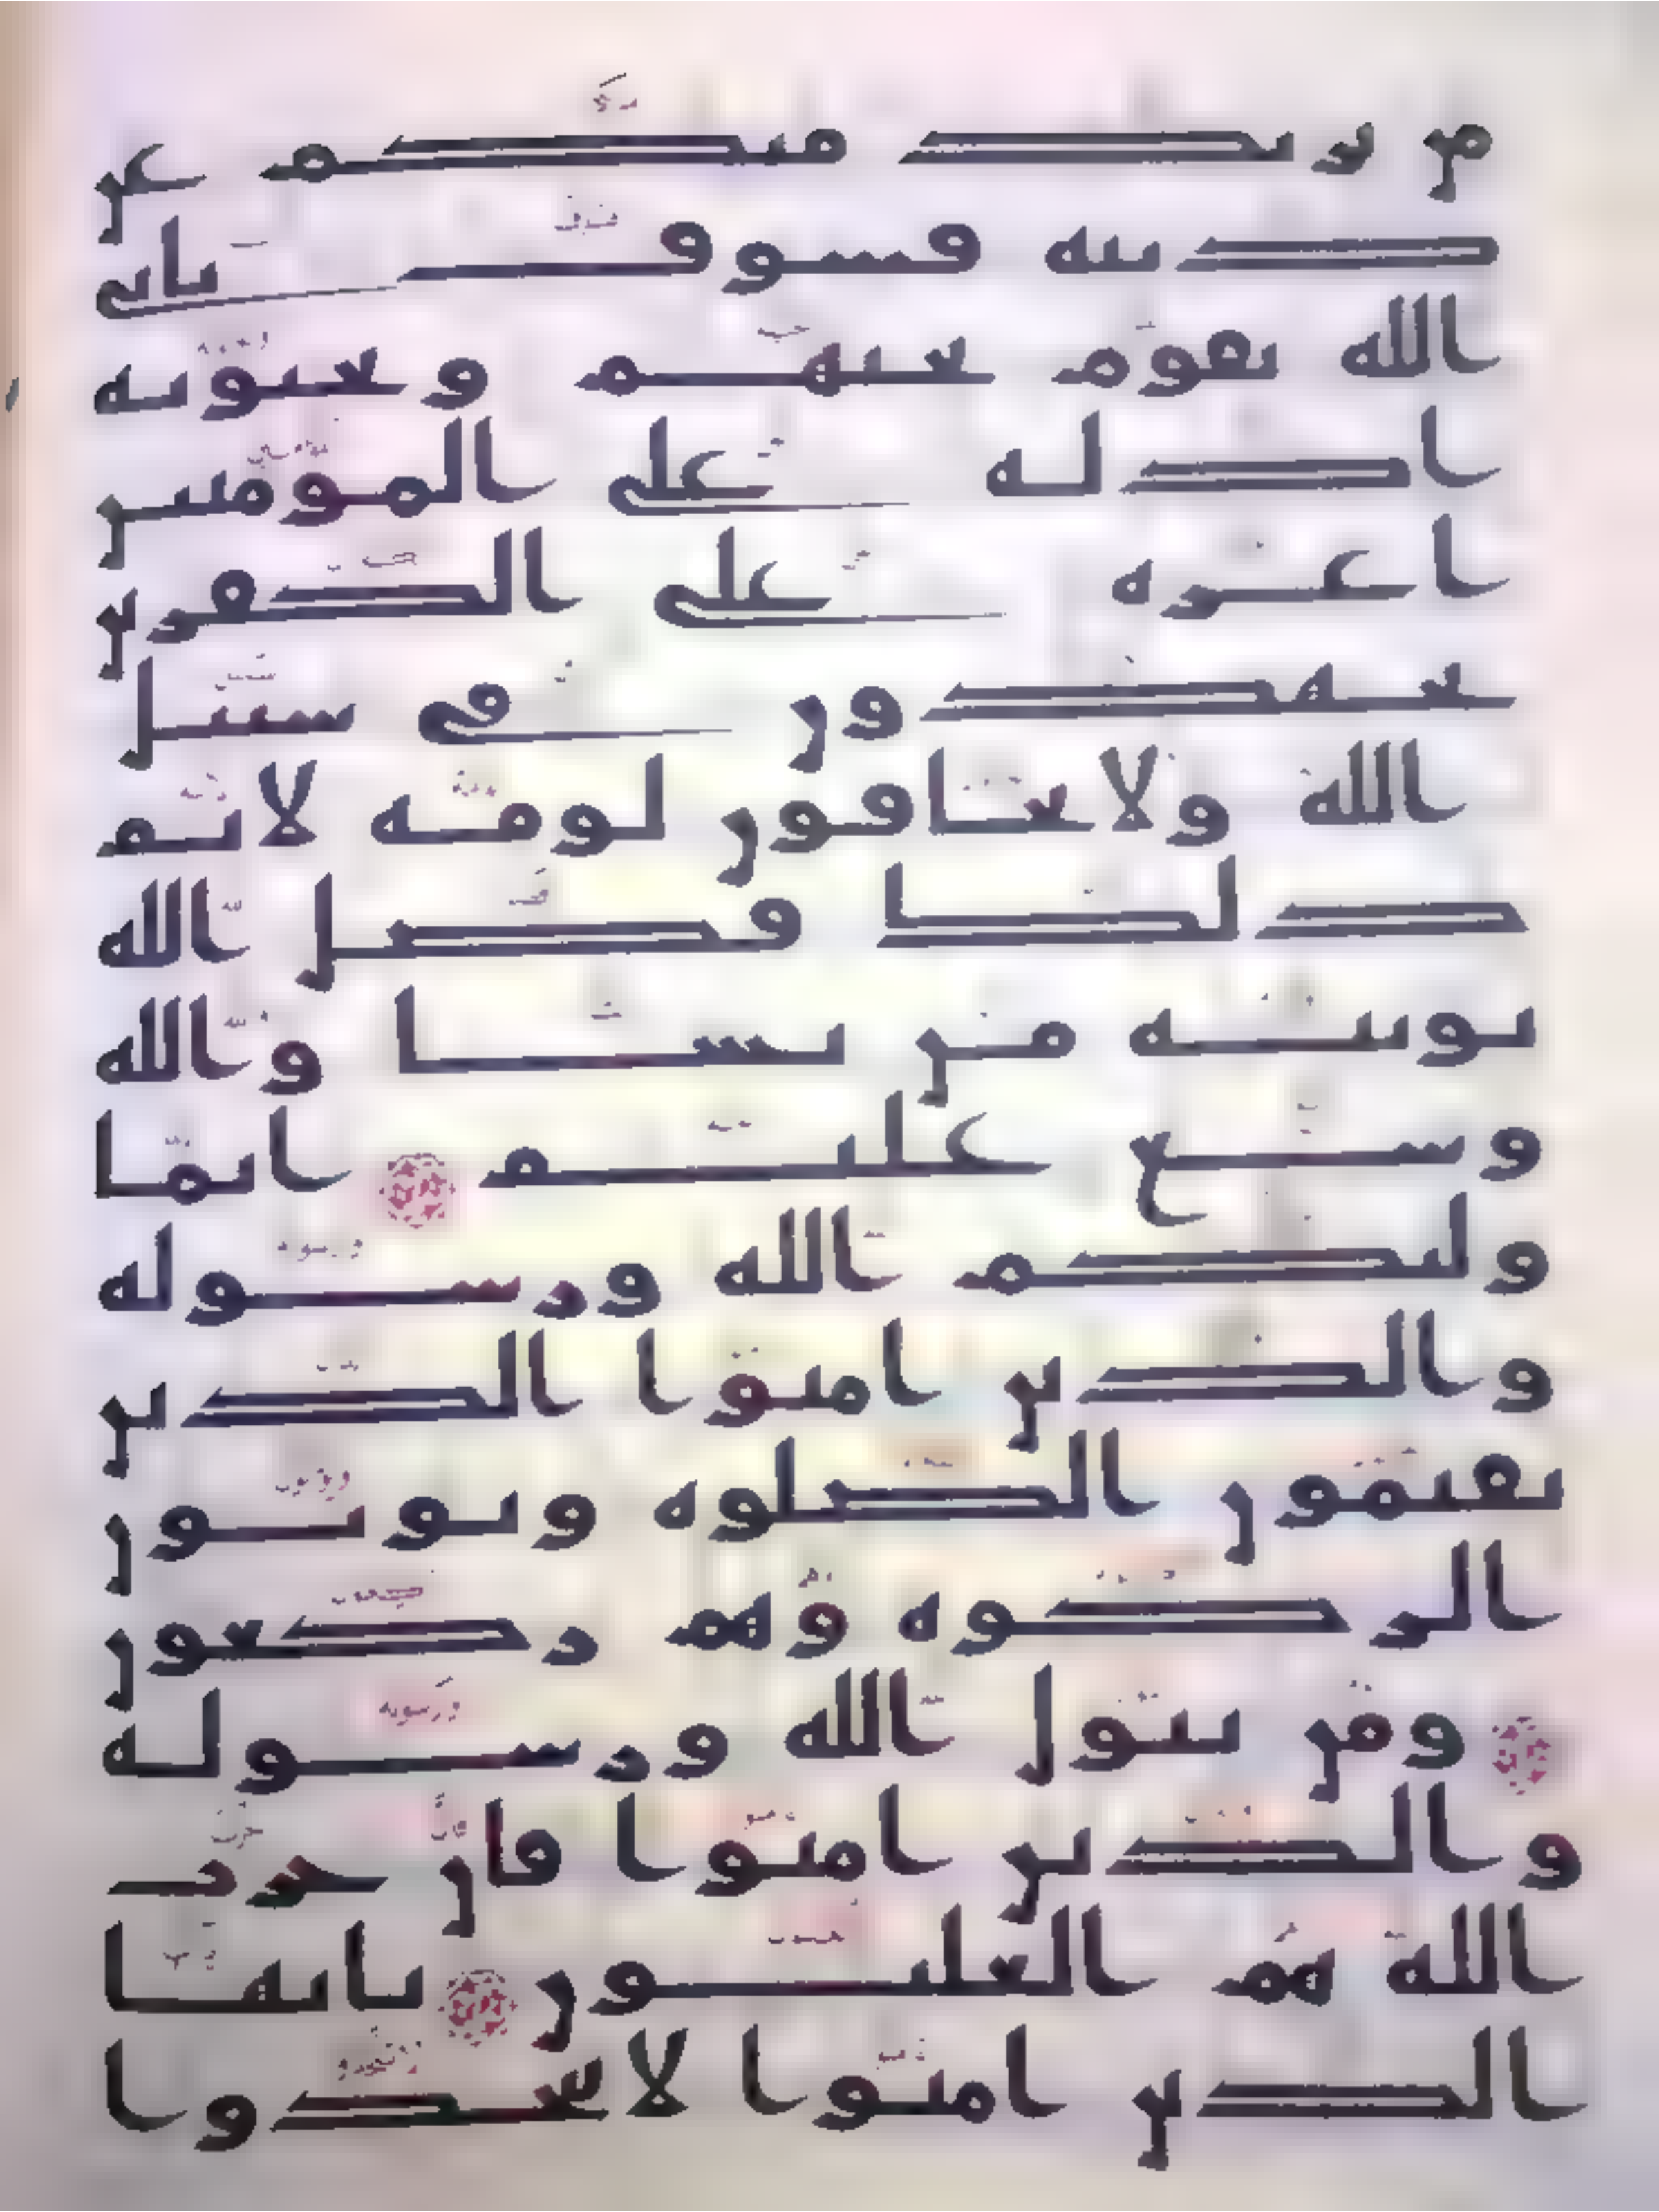 من يرتدد منكم عن
دينه فسوف ياتي
الله بقوم يحبهم ويحبونه
اذله على المومنين
اعزه على الكفرين
يجهدون في سبيل
الله ولا يخافون لومه لائم
ذلك فضل الله
يوتيه من يشا والله
وسع عليم انما
وليكم الله ورسوله
والذين امنوا الذين
يقيمون الصلوه ويوتون
الزكوه وهم ركعون
ومن يتول الله ورسوله
والذين امنوا فان حزب
الله هم الغلبون يايها
الذين امنوا لا تتخذوا